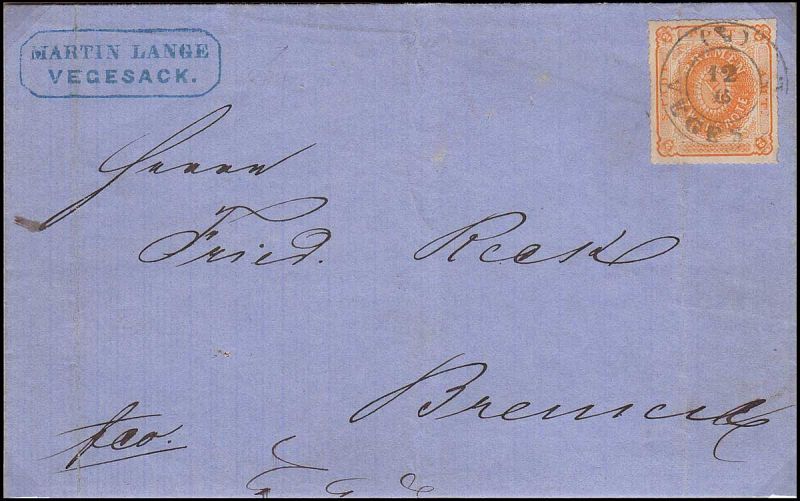 MARTIN LANGE
VEGESACK.
12
6
Herrn
Fried. Reck
Bremen
fco.